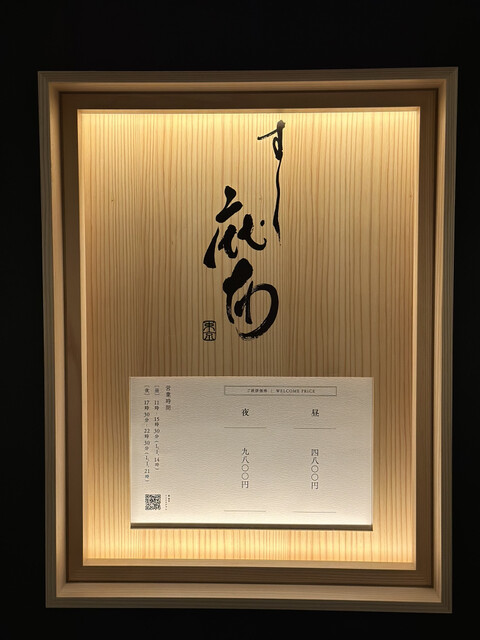 すし
麻布
東京
ご歓迎価格 | WELCOME PRICE
昼
四八〇〇円
夜
九八〇〇円
営業時間
[昼] 11時-15時30分(L.I. 14時)
[夜] 17時30分-22時30分(L.I. 21時)